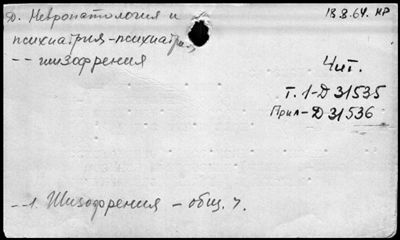 50. Невропатология и
18.8.64. НР
психиатрия-психиатрия
-- шизофрения
Чит.
Т. 1-Д 31535
Прил-Д 31536
--1. Шизофрения - общ. ч.